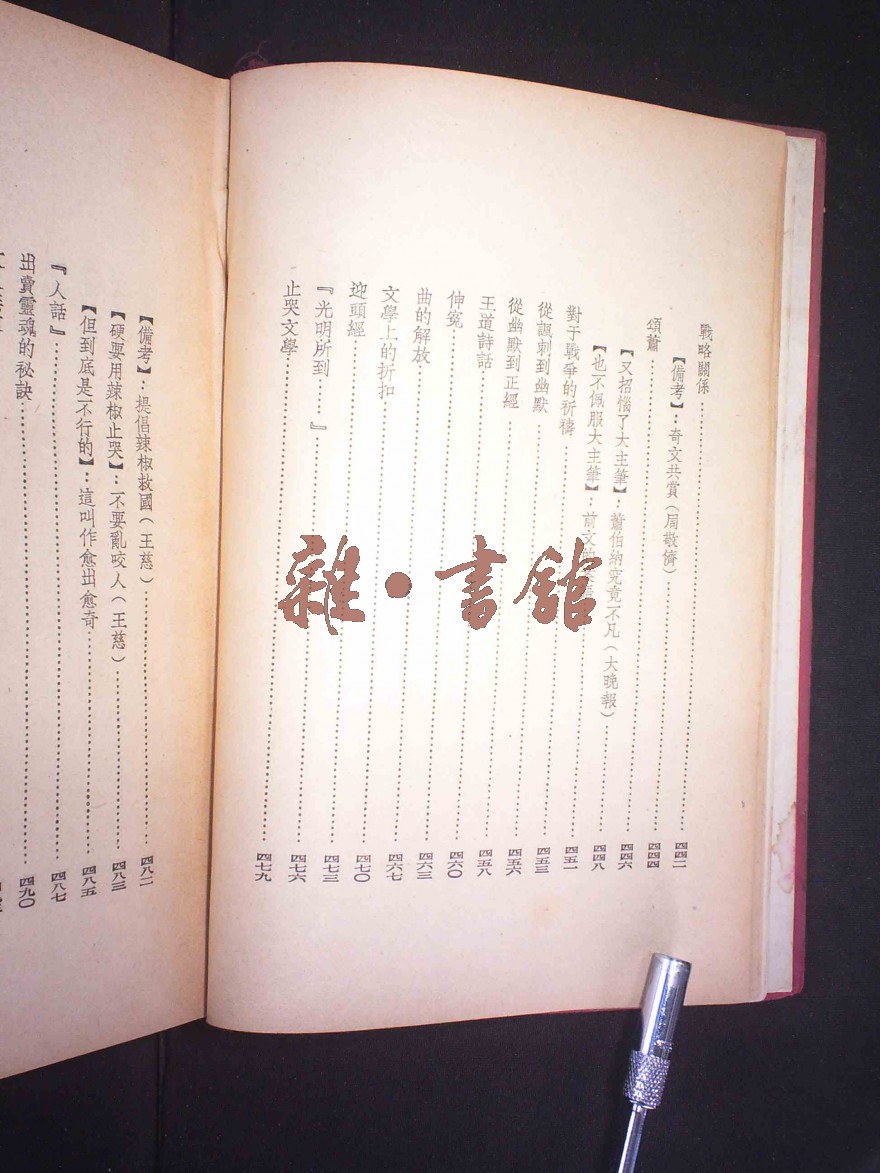 戰略關係……四四二
【備考】：奇文共賞（周敬儕）……四四四
頌蕭……四四六
【又招惱了大主筆】：蕭伯納究竟不凡（大晚報）……四四八
【也不佩服大主筆】：前文……四五一
對于戰爭的祈禱……四五三
從諷刺到幽默……四五六
從幽默到正經……四五八
王道詩話……四六〇
伸冤……四六三
曲的解放……四六七
文學上的折扣……四七〇
迎頭經……四七三
『光明所到……』……四七六
止哭文學……四七九
【備考】：提倡辣椒救國（王慈）……四八二
【硬要用辣椒止哭】：不要亂咬人（王慈）……四八三
【但到底是不行的】：這叫作愈出愈奇……四八五
『人話』……四八七
出賣靈魂的秘訣……四九〇
雜·書館